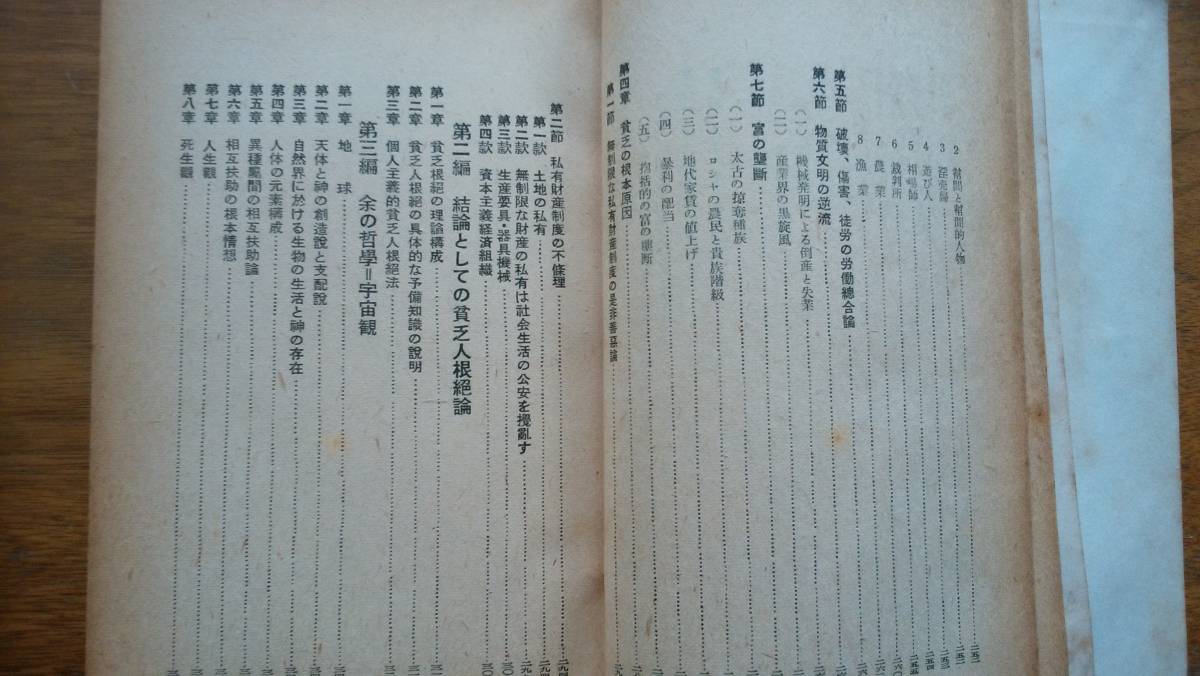 2 幇間と幇間的人物……二五一
3 淫売婦……二五二
4 遊び人……二五三
5 相場師……二五四
6 裁判所……二五五
7 農業……二六〇
8 漁業……二六
第五節 破壊、傷害、徒労の労働總合論……二
第六節 物質文明の逆流……二
(一) 機械発明による倒産と失業
(二) 産業界の黒旋風
第七節 富の壟断
(一) 太古の掠奪種族
(二) ロシヤの農民と貴族階級
(三) 地代家賃の値上げ
(四) 暴利の配当
(五) 抱括的の富の壟断
第四章 貧乏の根本原因
第一節 無制限な私有財産制度の是非善悪論
第二節 私有財産制度の不條理……二九四
第一款 土地の私有……二九
第二款 無制限な財産の私有は社会生活の公安を攪亂す
第三款 生産要具・器具機械……三〇
第四款 資本主義経済組織……三〇
第二編 結論としての貧乏人根絕論
第一章 貧乏根絕の理論構成……三一
第二章 貧乏人根絕の具体的な予備知識の說明
第三章 個人主義的貧乏人根絕法
第三編 余の哲學＝宇宙観
第一章 地球
第二章 天体と神の創造說と支配說
第三章 自然界に於ける生物の生活と神の存在
第四章 人体の元素構成
第五章 異種屬間の相互扶助論
第六章 相互扶助の根本情想
第七章 人生觀
第八章 死生觀